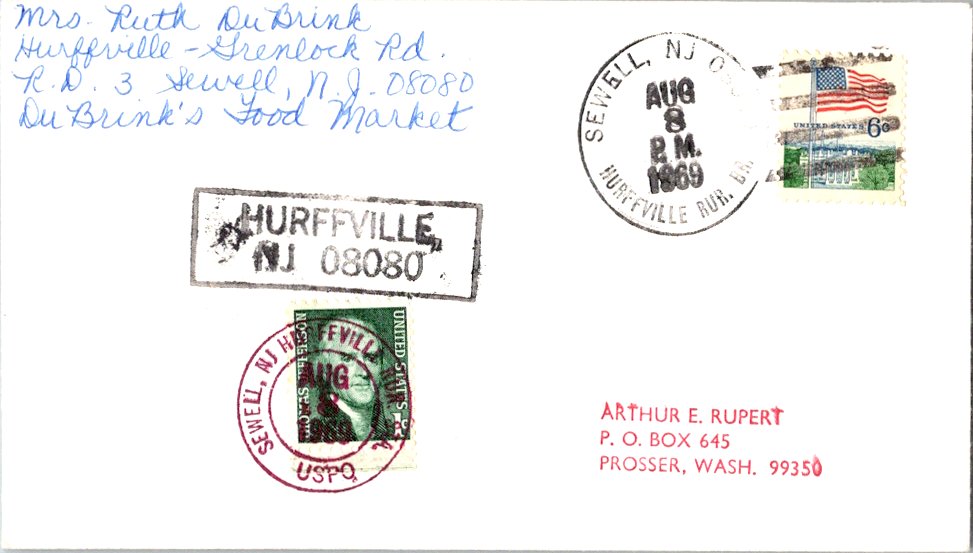 Mrs. Ruth DuBrink
Hurffville - Grenlock Rd.
R.D. 3 Sewell, N.J. 08080
DuBrink's Food Market
SEWELL, NJ
AUG
8
P.M.
1969
HURFFVILLE RUR. BR.
UNITED STATES 6¢
HURFFVILLE,
NJ 08080
SEWELL, NJ HURFFVILLE RUR.
AUG
8
1969
USPO
UNITED STATES 1¢
ARTHUR E. RUPERT
P. O. BOX 645
PROSSER, WASH. 99350